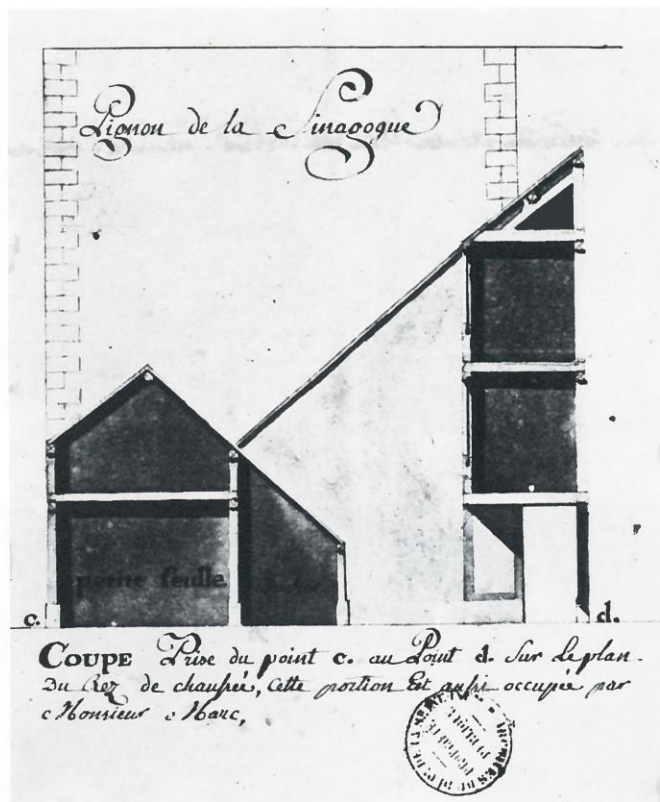 Pignon de la Sinagogue
petite feuille
c.
d.
COUPE Prise du point c. au Point d. Sur Le plan
Du Rez de chaussée, Cette portion Est aussi occupée par
Monsieur Marc,